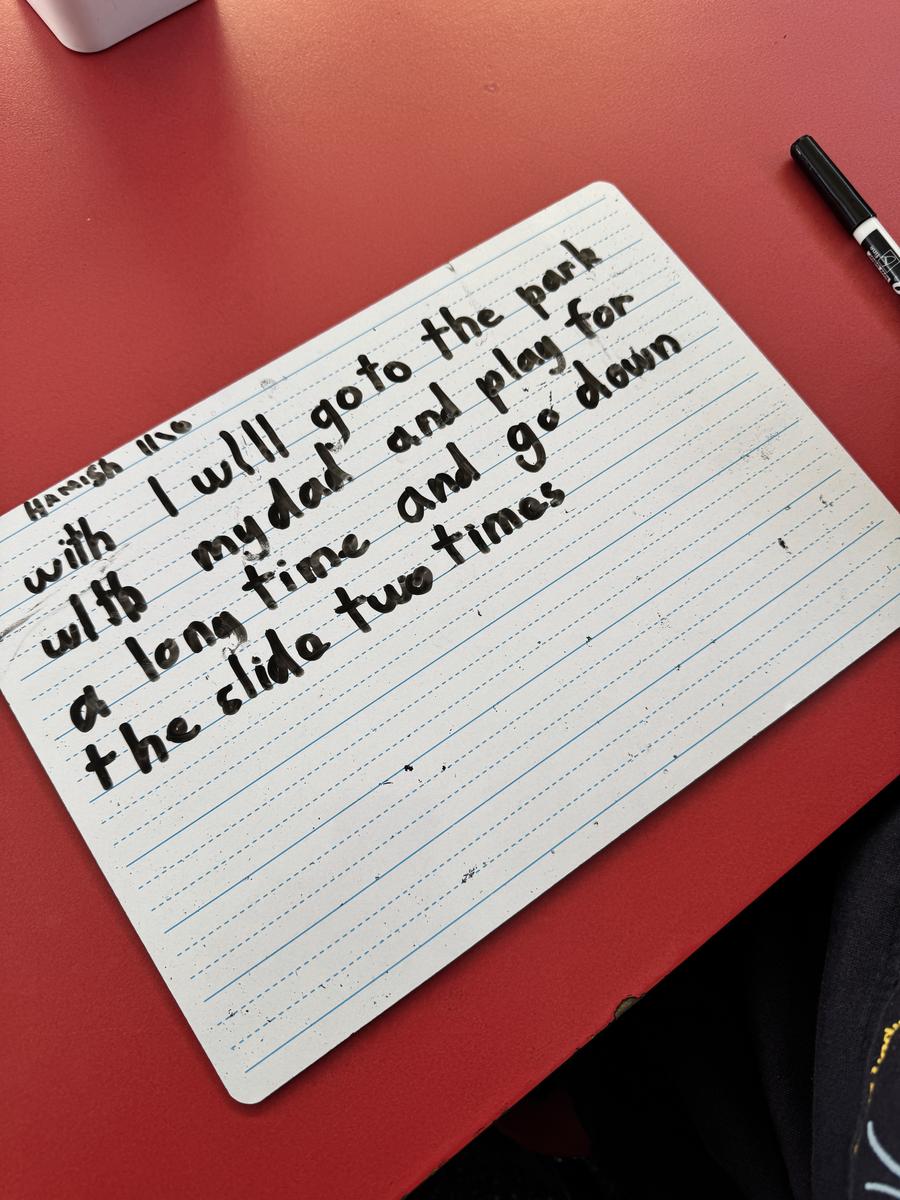 Hamish
with I will go to the park
with my dad and play for
a long time and go down
the slide two times